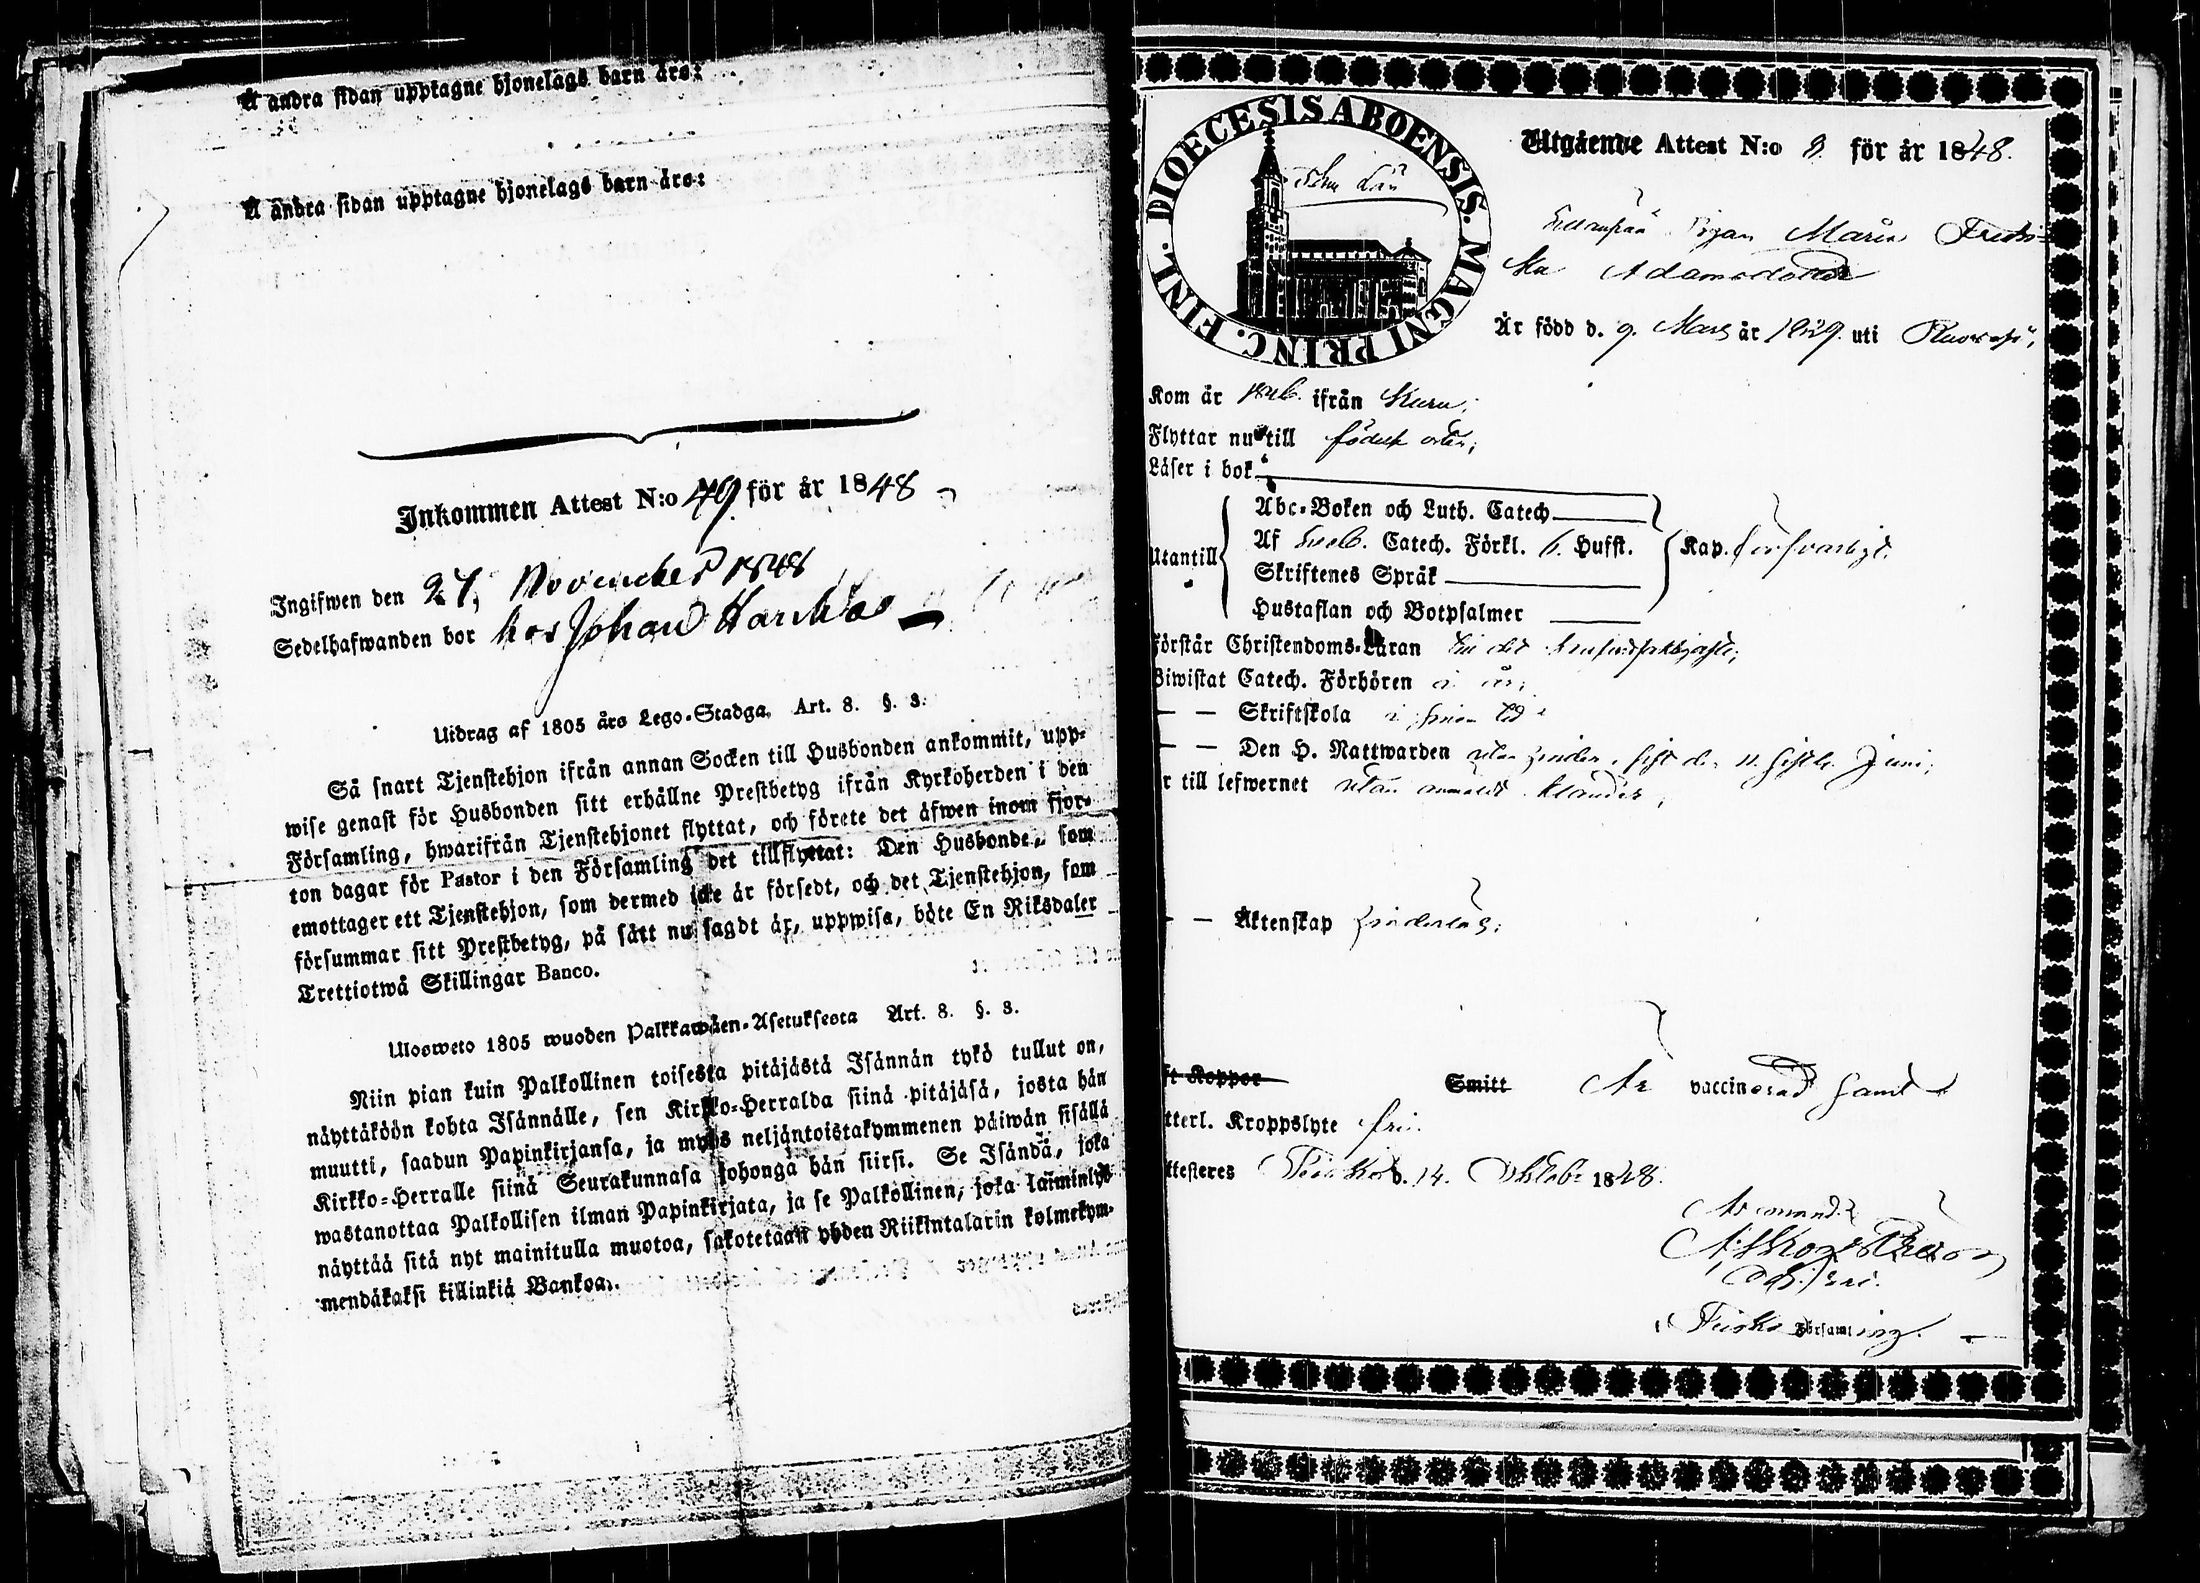 Å andra sidan upptagne hjonelags barn äro:
Å andra sidan upptagne hjonelags barn äro:
Inkommen Attest N:o 49 för år 1848
Ingifwen den 27, November 1848
Sedelhafwanden bor hos Johan
Utdrag af 1805 års Lego-Stadga, Art. 8. §. 3.
Så snart Tjenstehjon ifrån annan Socken till Husbonden ankommit, upp-
wise genast för Husbonden sitt erhållne Prestbetyg ifrån Kyrkoherden i den
Församling, hwarifrån Tjenstehjonet flyttat, och förete det äfwen inom fjor-
ton dagar för Pastor i den Församling det tillflyttat: Den Husbonde, som
emottager ett Tjenstehjon, som dermed icke är försedt, och det Tjenstehjon, som
försummar sitt Prestbetyg, på sätt nu sagdt är, uppwisa, böte En Riksdaler
Trettiotwå Skillingar Banco.
Ulosweto 1805 wuoden Palkkawäen-Asetuksesta Art. 8. §. 3.
Niin pian kuin Palkollinen toisesta pitäjästä Isännän tykö tullut on,
näyttäköön kohta Isännälle, sen Kirkko-Herralda siinä pitäjäsä, josta hän
muutti, saadun Papinkirjansa, ja myös neljäntoistakymmenen päiwän sisällä
Kirkko-Herralle siinä Seurakunnasa johonga hän siirsi. Se Isändä, joka
wastanottaa Palkollisen ilman Papinkirjata, ja se Palkollinen, joka laiminlyö
näyttää sitä nyt mainitulla muotoa, sakotetaan yhden Riikintalarin kolmekym-
mendäkaksi killinkiä Bankoa.
DIOECESIS ABOENSIS. MAGNI PRINC. FINL.
Län
Utgående Attest N:o 8. för år 1848.
Pigan Maria Fredri-
ka Adamsdotter
Är född d. 9. Mars år 1829. uti Ruovesi,
Kom år 1846. ifrån Kuru;
Flyttar nu till födelse orten;
Läser i bok
Utantill
Abc-Boken och Luth. Catech.
Af Sveb. Catech. Förkl. 6. Hufst.
Skriftenes Språk
Hustaflan och Botpsalmer
Kap. försvarligt.
Förstår Christendoms-Läran
Biwistat Catech. Förhören i år;
— — Skriftskola i sinom tid
— — Den H. Nattwarden utan hinder, sist d. 11. sistl. Juni;
r till lefwernet utan anmäldt klander;
— — Äktenskap hinderlös;
ft Koppor Smitt Är vaccinerad samt
tterl. Kroppslyte fri.
ttesteres Teisko d. 14. Oktober 1848.
Teisko Församling.